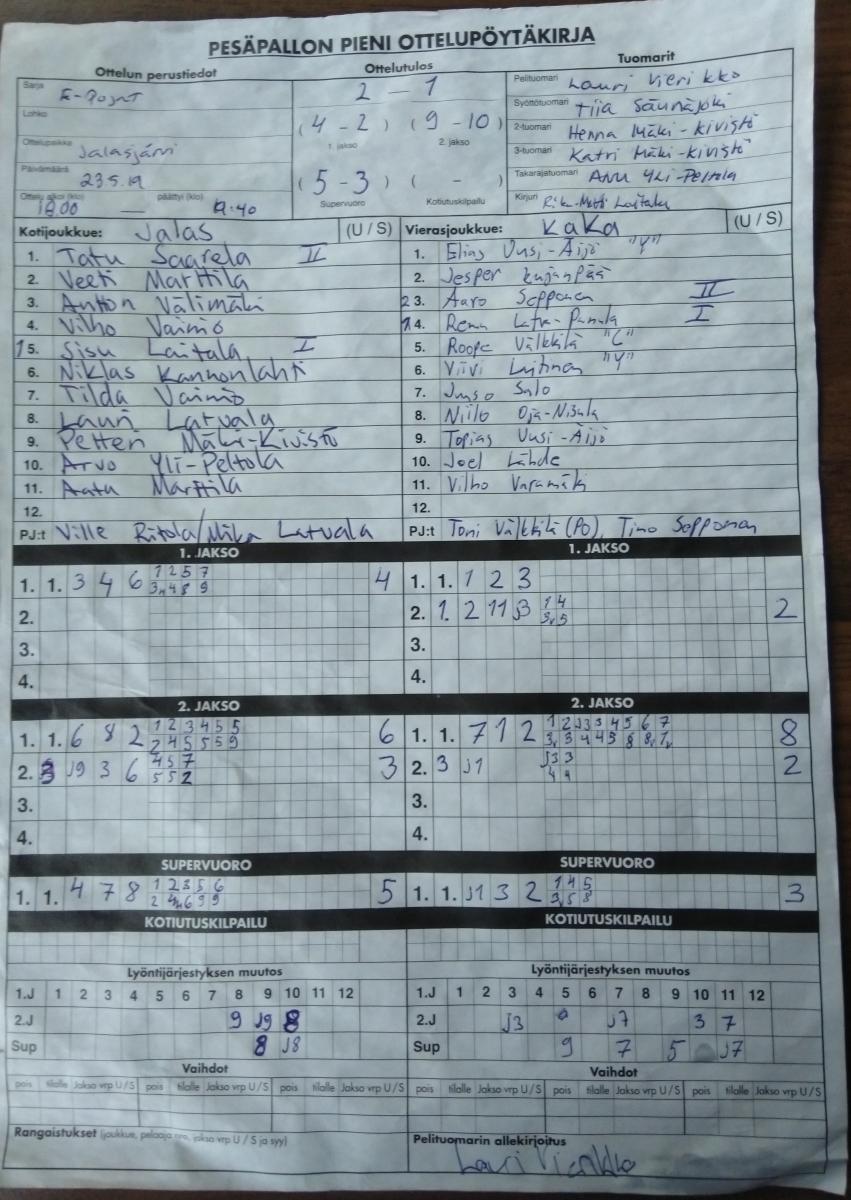 PESÄPALLON PIENI OTTELUPÖYTÄKIRJA
Ottelun perustiedot
Sarja E-Pojat
Lohko
Ottelupaikka Jalasjärvi
Päivämäärä 23.5.19
Ottelu alkoi (klo) 18.00 — päättyi (klo) 19.40
Ottelutulos
2 - 1
(4 - 2) (9 - 10)
1. jakso 2. jakso
(5 - 3) ( - )
Supervuoro Kotiutuskilpailu
Tuomarit
Pelituomari Lauri Vierikko
Syöttötuomari Tiia Säunäjoki
2-tuomari Henna Mäki-Kivistö
3-tuomari Katri Mäki-Kivistö
Takarajatuomari Anu Yli-Peltola
Kirjuri Laitala
Kotijoukkue: Jalas (U / S)
1. Tatu Saarela II
2. Veeti Marttila
3. Anton Välimäki
4. Vilho Vainiö
15. Sisu Laitala I
6. Niklas Kannonlahti
7. Tilda Vainiö
8. Lauri Latvala
9. Petteri Mäki-Kivistö
10. Arvo Yli-Peltola
11. Aatu Marttila
12.
PJ:t Ville Ritola/Mika Latvala
Vierasjoukkue: KaKa (U / S)
1. Elias Uusi-Äijö "Y"
2. Jesper Kujanpää
23. Aaro Sepponen II
14. I
5. Roope Välkkilä "C"
6. Viivi Luitinen "Y"
7. Juuso Salo
8. Niilo Oja-Nisula
9. Topias Uusi-Äijö
10. Joel Lähde
11. Vilho Varamäki
12.
PJ:t Toni Välkkilä (PO), Timo Sepponen
1. JAKSO
1. 1. 3 4 6 1 2 5 7 4
3. 4 8 9
2.
3.
4.
1. JAKSO
1. 1. 1 2 3
2. 1. 2 11 J3 1 4 2
3. 5
3.
4.
2. JAKSO
1. 1. 6 8 2 1 2 3 4 5 5 6
2 4 5 5 5 9
2. J9 3 6 4 5 7 3
5 5 2
3.
4.
2. JAKSO
1. 1. 7 1 2 1 2 J3 3 4 5 6 7 8
3. 3 4 4 5 8 8. 1.
2. 3 J1 J3 3 2
4 4
3.
4.
SUPERVUORO
1. 1. 4 7 8 1 2 3 5 6 5
2 4. 6 9 9
SUPERVUORO
1. 1. J1 3 2 1 4 5 3
3. 5 8
KOTIUTUSKILPAILU
KOTIUTUSKILPAILU
Lyöntijärjestyksen muutos
1.J 1 2 3 4 5 6 7 8 9 10 11 12
2.J 9 J9 8
Sup 8 J8
Lyöntijärjestyksen muutos
1.J 1 2 3 4 5 6 7 8 9 10 11 12
2.J J3 J7 3 7
Sup 9 7 5 J7
Vaihdot
pois tilalle Jakso vrp U / S pois tilalle Jakso vrp U / S pois tilalle Jakso vrp U / S
Vaihdot
pois tilalle Jakso vrp U / S pois tilalle Jakso vrp U / S pois tilalle Jakso vrp U / S
Rangaistukset (joukkue, pelaaja nro, jakso vrp U / S ja syy)
Pelituomarin allekirjoitus
Lauri Vierikko